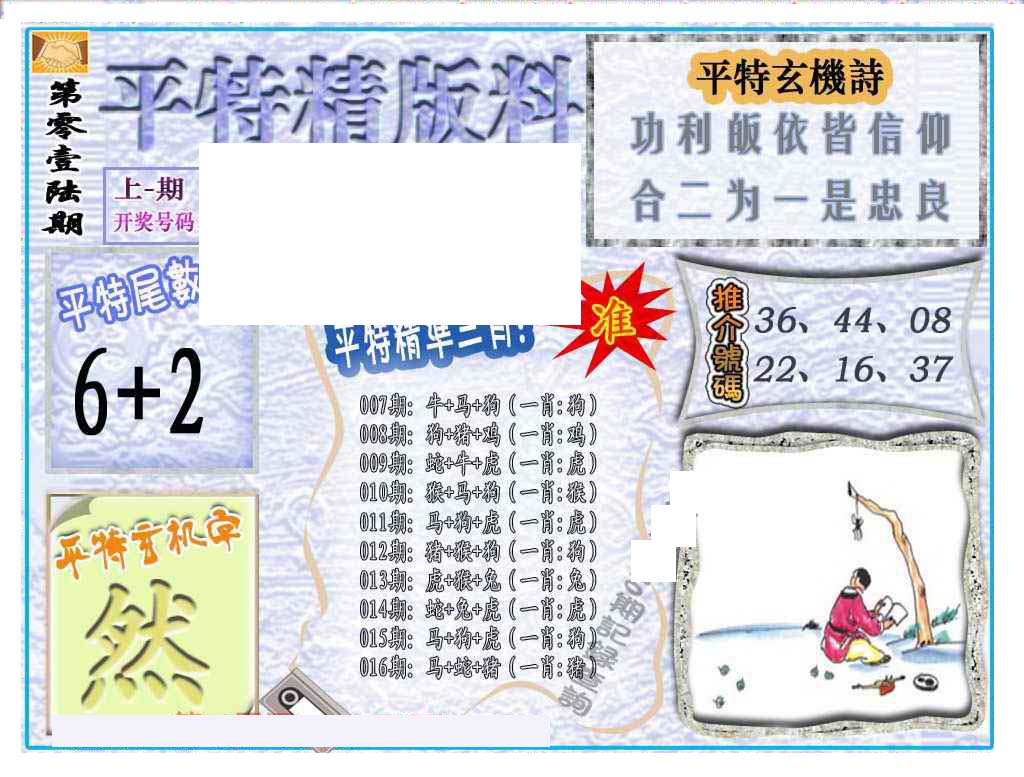 第零壹陆期
平特精版料
上-期
开奖号码
平特玄機詩
功利皈依皆信仰
合二为一是忠良
平特尾數
6+2
平特精準三肖:
准
推介號碼
36、44、08
22、16、37
007期: 牛+马+狗(一肖:狗)
008期: 狗+猪+鸡(一肖:鸡)
009期: 蛇+牛+虎(一肖:虎)
010期: 猴+马+狗(一肖:猴)
011期: 马+狗+虎(一肖:虎)
012期: 猪+猴+狗(一肖:狗)
013期: 虎+猴+兔(一肖:兔)
014期: 蛇+兔+虎(一肖:虎)
015期: 马+狗+虎(一肖:狗)
016期: 马+蛇+猪(一肖:猪)
平特玄机字
然
期記錄查詢